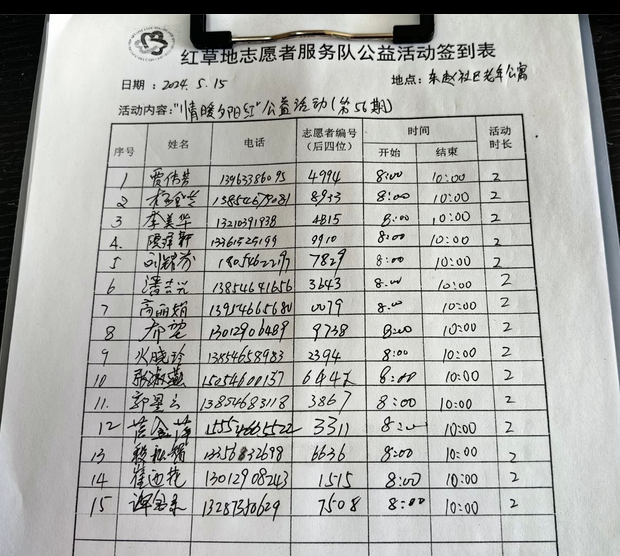 红草地志愿者服务队公益活动签到表
日期：2024.5.15 地点：东赵社区老年公寓
活动内容："情暖夕阳红"公益活动(第56期)
序号 姓名 电话 志愿者编号（后四位） 时间 开始 结束 活动时长
1 贾伟芳 13963386095 4994 8:00 10:00 2
2 15854679081 8933 8:00 10:00 2
3 李美华 13210391938 4815 8:00 10:00 2
4. 13361525199 9910 8:00 10:00 2
5 18054622197 7829 8:00 10:00 2
6 潘兰兴 13854641656 3643 8:00 10:00 2
7 高丽娟 13954665680 0079 8:00 10:00 2
8 13012906489 9738 8:00 10:00 2
9 火晓玲 13854658983 2394 8:00 10:00 2
10 张淑燕 15054600157 8:00 10:00 2
11. 郭墨云 13854683118 3867 8:00 10:00 2
12 15554665522 3311 8:00 10:00 2
13 13356832698 6636 8:00 10:00 2
14 崔迎艳 13012908243 1515 8:00 10:00 2
15 13287350629 7508 8:00 10:00 2